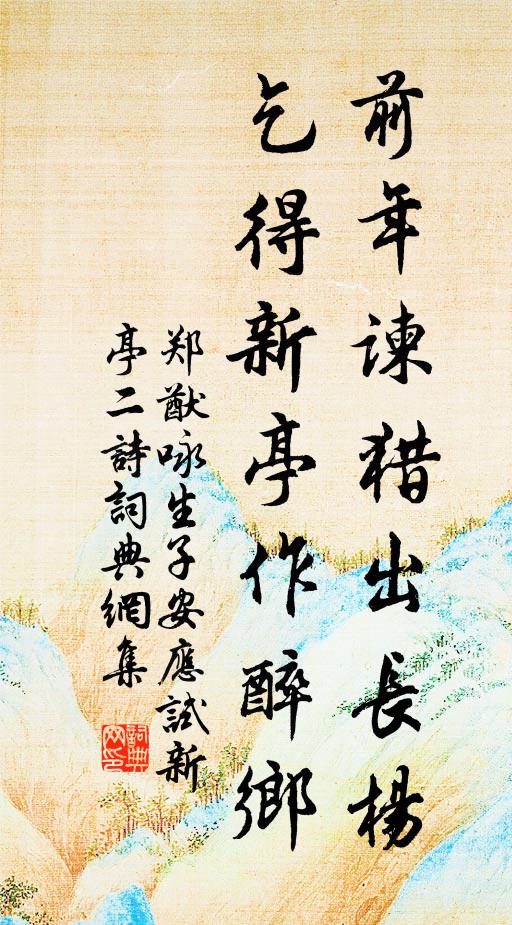 前年諫猎出長楊
乞得新亭作醉鄉
郑猷咏生子安應試新
亭二詩詞典網集
詞典
网印